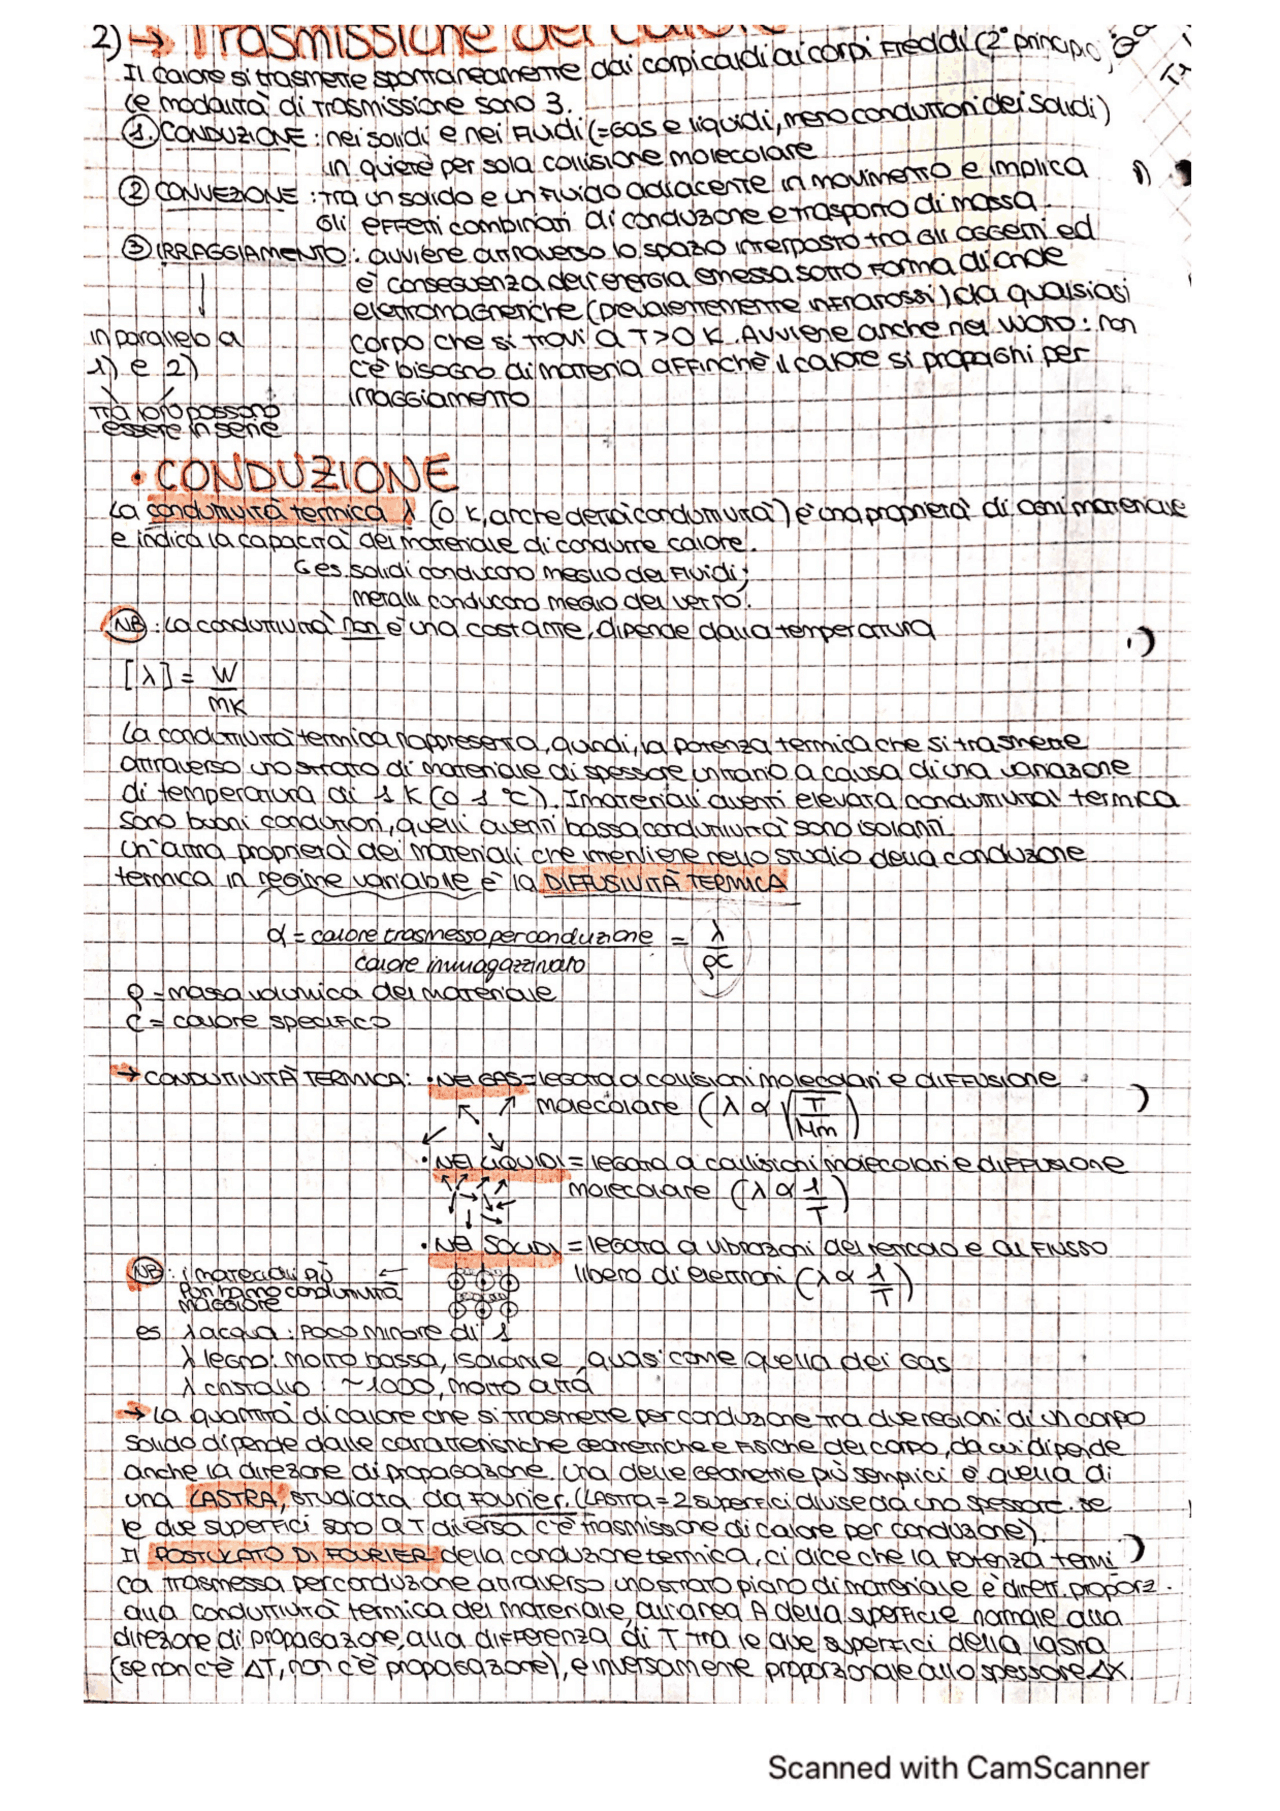 2) → Trasmissione del calore
Il calore si trasmette spontaneamente dai corpi caldi ai corpi freddi (2° principio)
Le modalità di trasmissione sono 3.
1. CONDUZIONE: nei solidi e nei fluidi (=gas e liquidi, meno conduttori dei solidi)
in quiete per sola collisione molecolare
2 CONVEZIONE: tra un solido e un fluido adiacente in movimento e implica
gli effetti combinati di conduzione e trasporto di massa.
3 IRRAGGIAMENTO: avviene attraverso lo spazio interposto tra gli oggetti ed
è conseguenza dell'energia emessa sotto forma di onde
elettromagnetiche (prevalentemente infrarossi) da qualsiasi
in parallelo a
corpo che si trovi a T>0 K. Avviene anche nel vuoto: non
1) e 2)
c'è bisogno di materia affinchè il calore si propaghi per
irraggiamento
tra loro possono
essere in serie
• CONDUZIONE
La conduttività termica λ (o K, anche detta conduttività) è una proprietà di ogni materiale
e indica la capacità del materiale di condurre calore.
es. solidi conducono meglio dei fluidi;
metalli conducono meglio del vetro.
NB: La conduttività non è una costante, dipende dalla temperatura
[λ] = W
mK
La conduttività termica rappresenta, quindi, la potenza termica che si trasmette
attraverso uno strato di materiale di spessore unitario a causa di una variazione
di temperatura di 1 K (o 1 °C). I materiali aventi elevata conduttività termica
sono buoni conduttori, quelli aventi bassa conduttività sono isolanti.
Un'altra proprietà dei materiali che interviene nello studio della conduzione
termica in regime variabile è la DIFFUSIVITÀ TERMICA
α = calore trasmesso per conduzione = λ
calore immagazzinato ρc
ρ = massa volumica del materiale
c = calore specifico
→ CONDUTTIVITÀ TERMICA: • NEI GAS = legata a collisioni molecolari e diffusione
molecolare (λ α √T/Mm)
• NEI LIQUIDI = legata a collisioni molecolari e diffusione
molecolare (λ α 1/T)
• NEI SOLIDI = legata a vibrazioni del reticolo e al flusso
libero di elettroni (λ α 1/T)
NB: i materiali più
puri hanno conduttività
maggiore
es λ acqua: poco minore di 1
λ legno: molto bassa, isolante, quasi come quella dei gas
λ cristallo: ~1000, molto alta
→ La quantità di calore che si trasmette per conduzione tra due regioni di un corpo
solido dipende dalle caratteristiche geometriche e fisiche del corpo, da cui dipende
anche la direzione di propagazione. Una delle geometrie più semplici è quella di
una LASTRA, studiata da Fourier. (LASTRA = 2 superfici divise da uno spessore. se
le due superfici sono a T diversa c'è trasmissione di calore per conduzione).
Il POSTULATO DI FOURIER della conduzione termica, ci dice che la potenza termi
ca trasmessa per conduzione attraverso uno strato piano di materiale è dirett. proporz.
alla conduttività termica del materiale, all'area A della superficie normale alla
direzione di propagazione, alla differenza di T tra le due superfici della lastra
(se non c'è ΔT, non c'è propagazione), e inversamente proporzionale allo spessore Δx.
Scanned with CamScanner